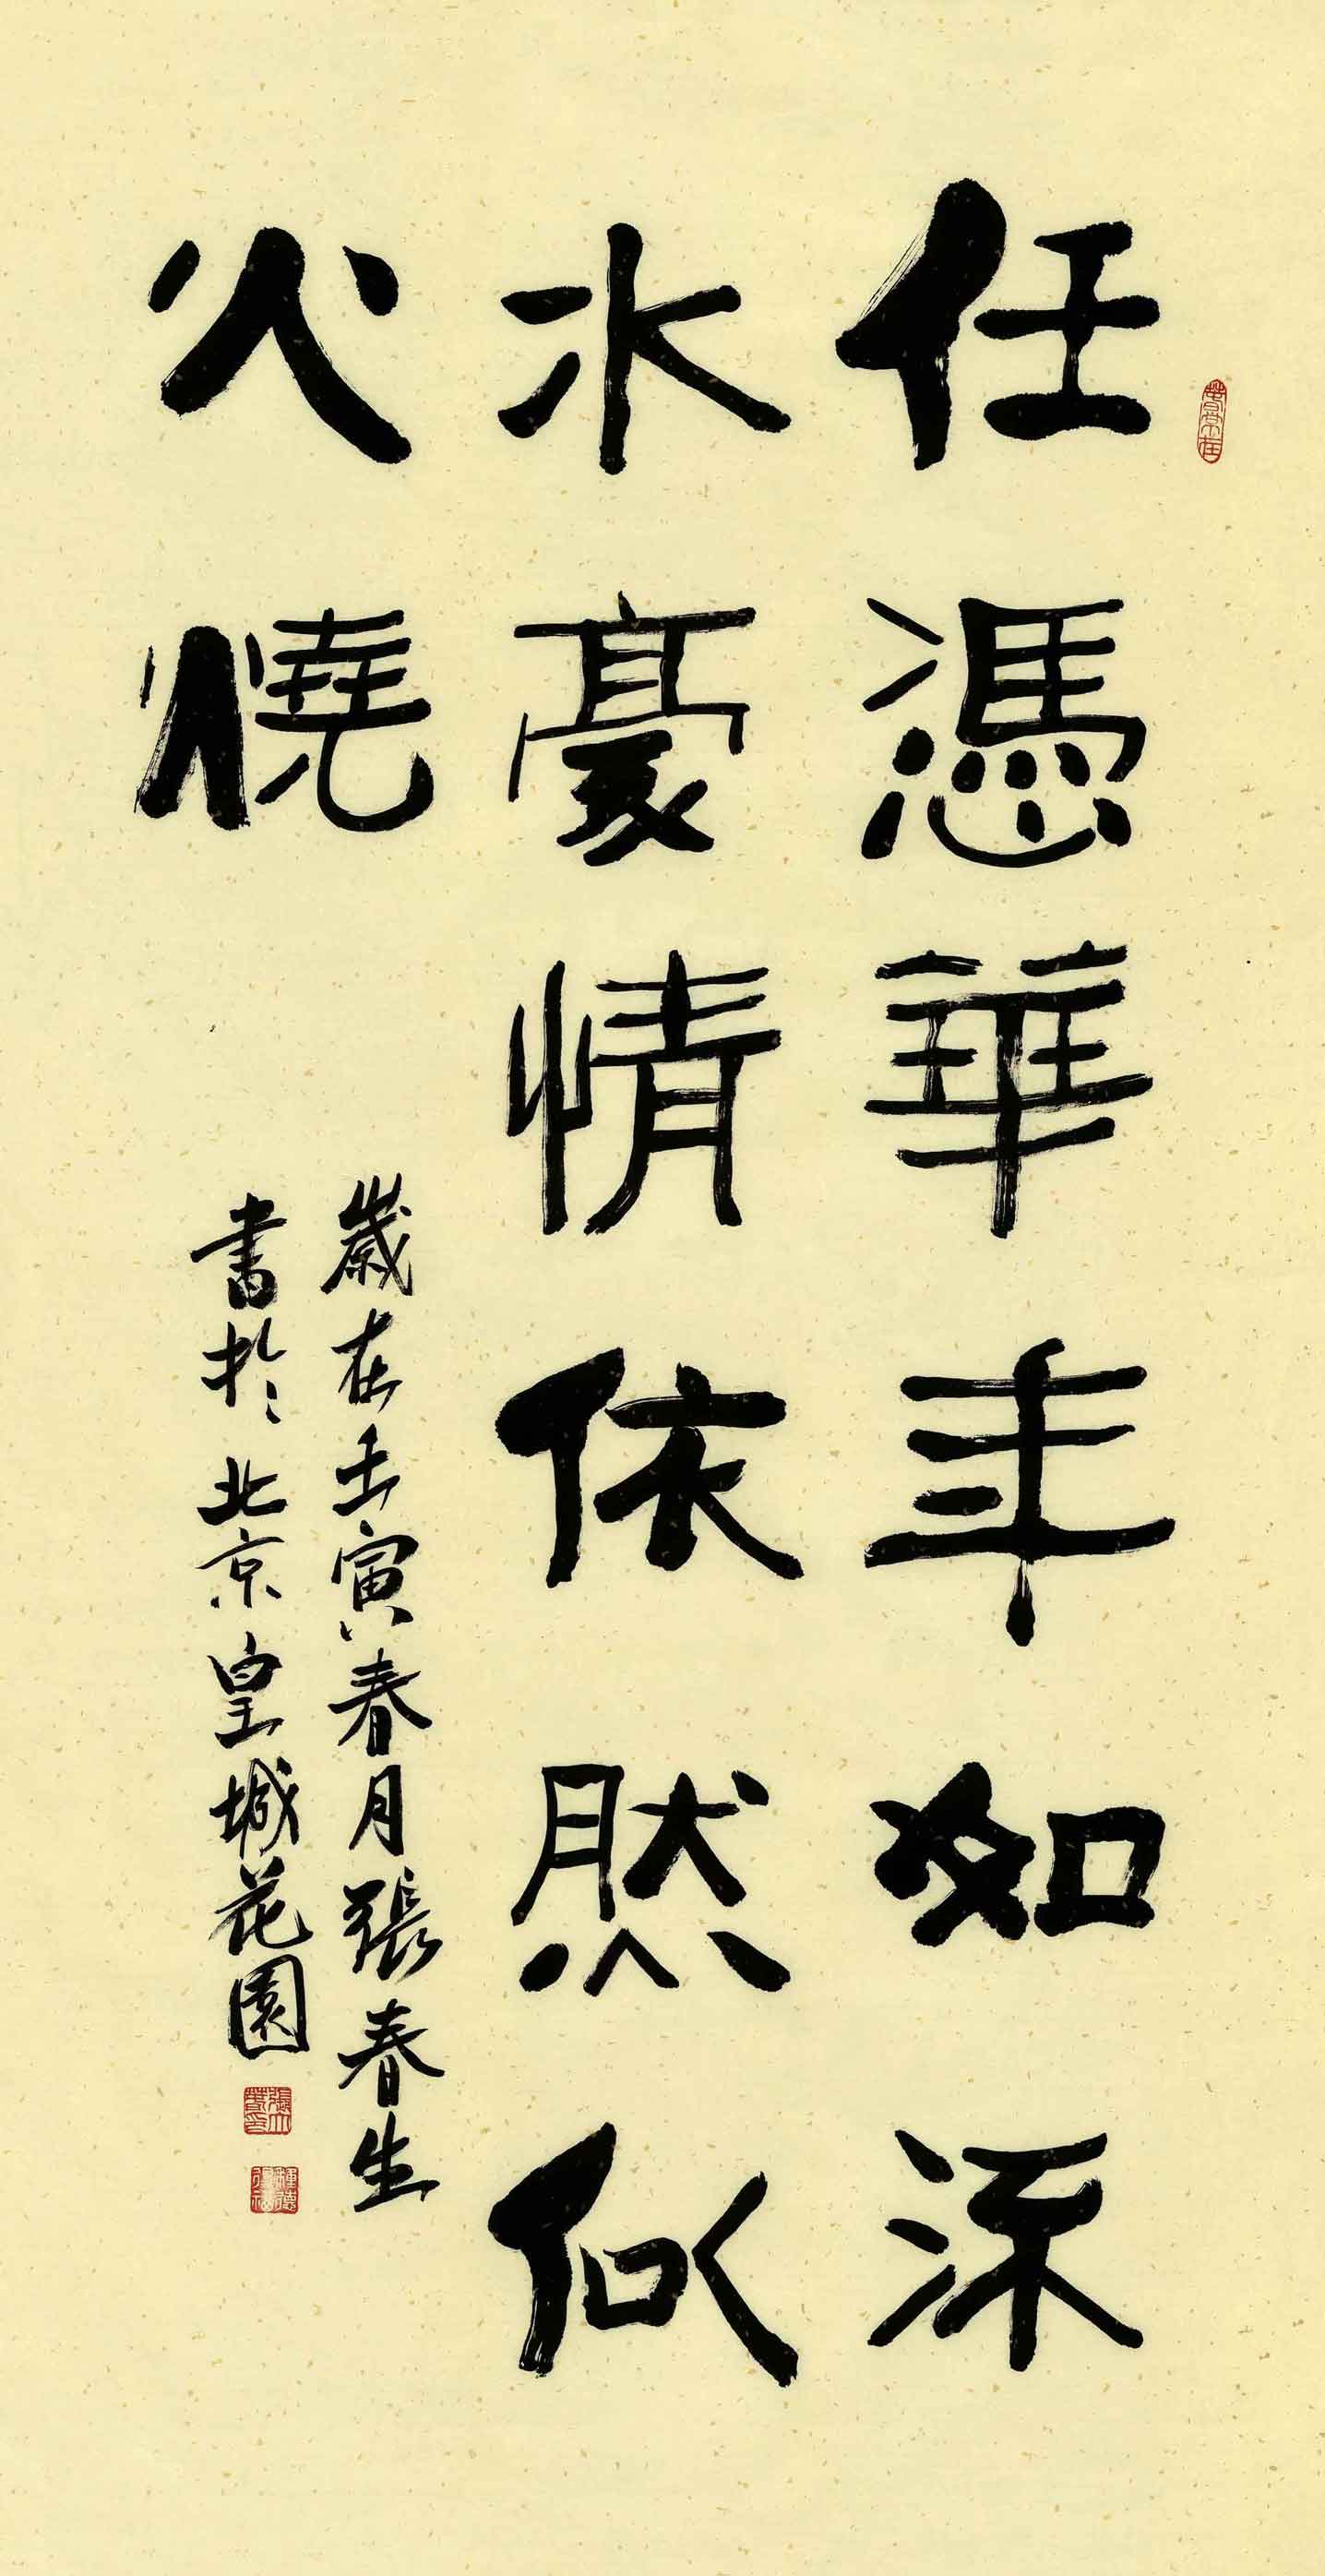 任憑華年如流
水豪情依然似
火燒
歲在壬寅春月張春生
書於北京皇城花園